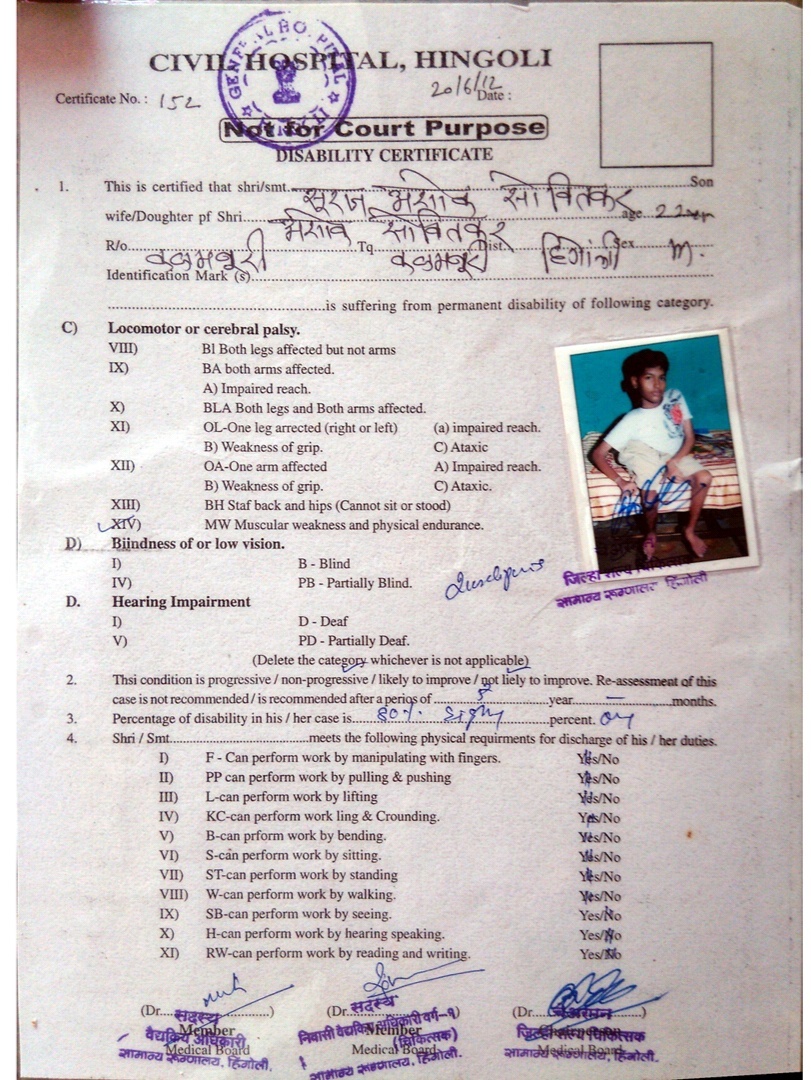 CIVIL HOSPITAL, HINGOLI
GENERAL HOSPITAL HINGOLI
Certificate No. : 152
20/6/12
Date :
Not for Court Purpose
DISABILITY CERTIFICATE
1. This is certified that shri/smt. सूरज अशोक सोवितकर Son
wife/Doughter pf Shri. अशोक सोवितकर age 22
R/o. कळमनुरी Tq. कळमनुरी Dist. हिंगोली Sex M.
Identification Mark (s)
is suffering from permanent disability of following category.
C) Locomotor or cerebral palsy.
VIII) Bl Both legs affected but not arms
IX) BA both arms affected.
A) Impaired reach.
X) BLA Both legs and Both arms affected.
XI) OL-One leg arrected (right or left) (a) impaired reach.
B) Weakness of grip. C) Ataxic
XII) OA-One arm affected A) Impaired reach.
B) Weakness of grip. C) Ataxic.
XIII) BH Staf back and hips (Cannot sit or stood)
XIV) MW Muscular weakness and physical endurance.
D) Biindness of or low vision.
I) B - Blind
IV) PB - Partially Blind.
जिल्हा शल्य चिकित्सक
सामान्य रूग्णालय हिंगोली
D. Hearing Impairment
I) D - Deaf
V) PD - Partially Deaf.
(Delete the category whichever is not applicable)
2. Thsi condition is progressive / non-progressive / likely to improve / not liely to improve. Re-assessment of this
case is not recommended / is recommended after a periqs of 5 year. — months.
3. Percentage of disability in his / her case is 80% percent.
4. Shri / Smt. meets the following physical requirments for discharge of his / her duties.
I) F - Can perform work by manipulating with fingers. Yes/No
II) PP can perform work by pulling & pushing Yes/No
III) L-can perform work by lifting Yes/No
IV) KC-can perform work ling & Crounding. Yes/No
V) B-can prform work by bending. Yes/No
VI) S-can perform work by sitting. Yes/No
VII) ST-can perform work by standing Yes/No
VIII) W-can perform work by walking. Yes/No
IX) SB-can perform work by seeing. Yes/No
X) H-can perform work by hearing speaking. Yes/No
XI) RW-can perform work by reading and writing. Yes/No
(Dr. सदस्य ) (Dr. सदस्य ) (Dr. चेअरमन )
Member Member
वैद्यकिय अधिकारी निवासी वैद्यकिय अधिकारी वर्ग-१ (चिकित्सक) जिल्हा शल्य चिकित्सक
Medical Board Medical Board Medical Board
सामान्य रूग्णालय, हिंगोली. सामान्य रूग्णालय, हिंगोली. सामान्य रूग्णालय, हिंगोली.